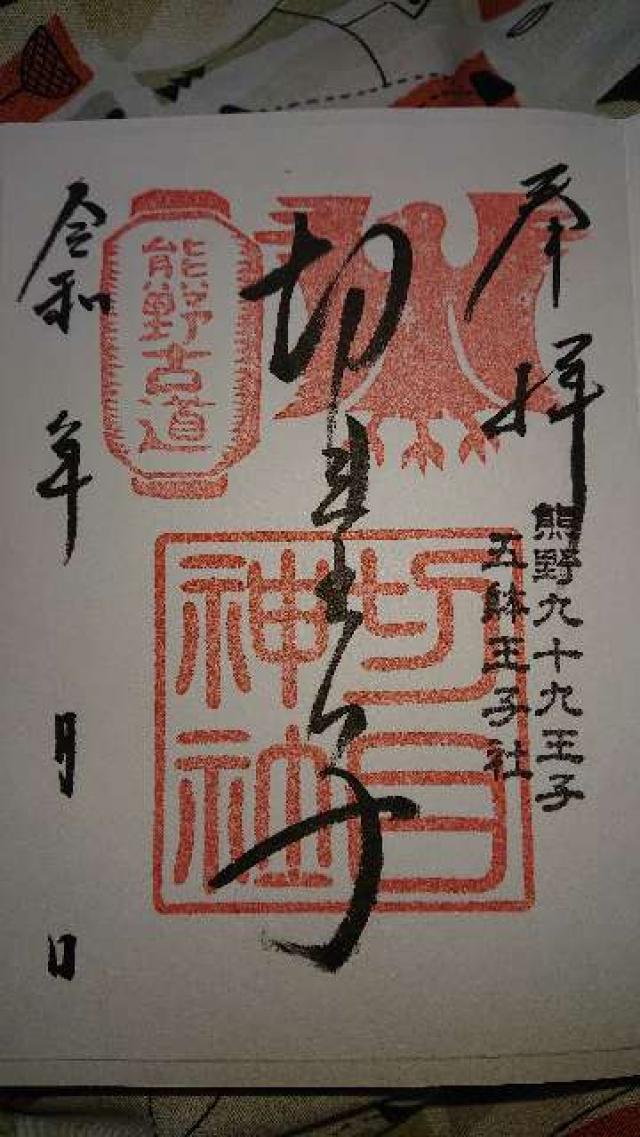 奉拝
熊野九十九王子
五躰王子社
切目王子
切目神社
熊野古道
令和 年 月 日